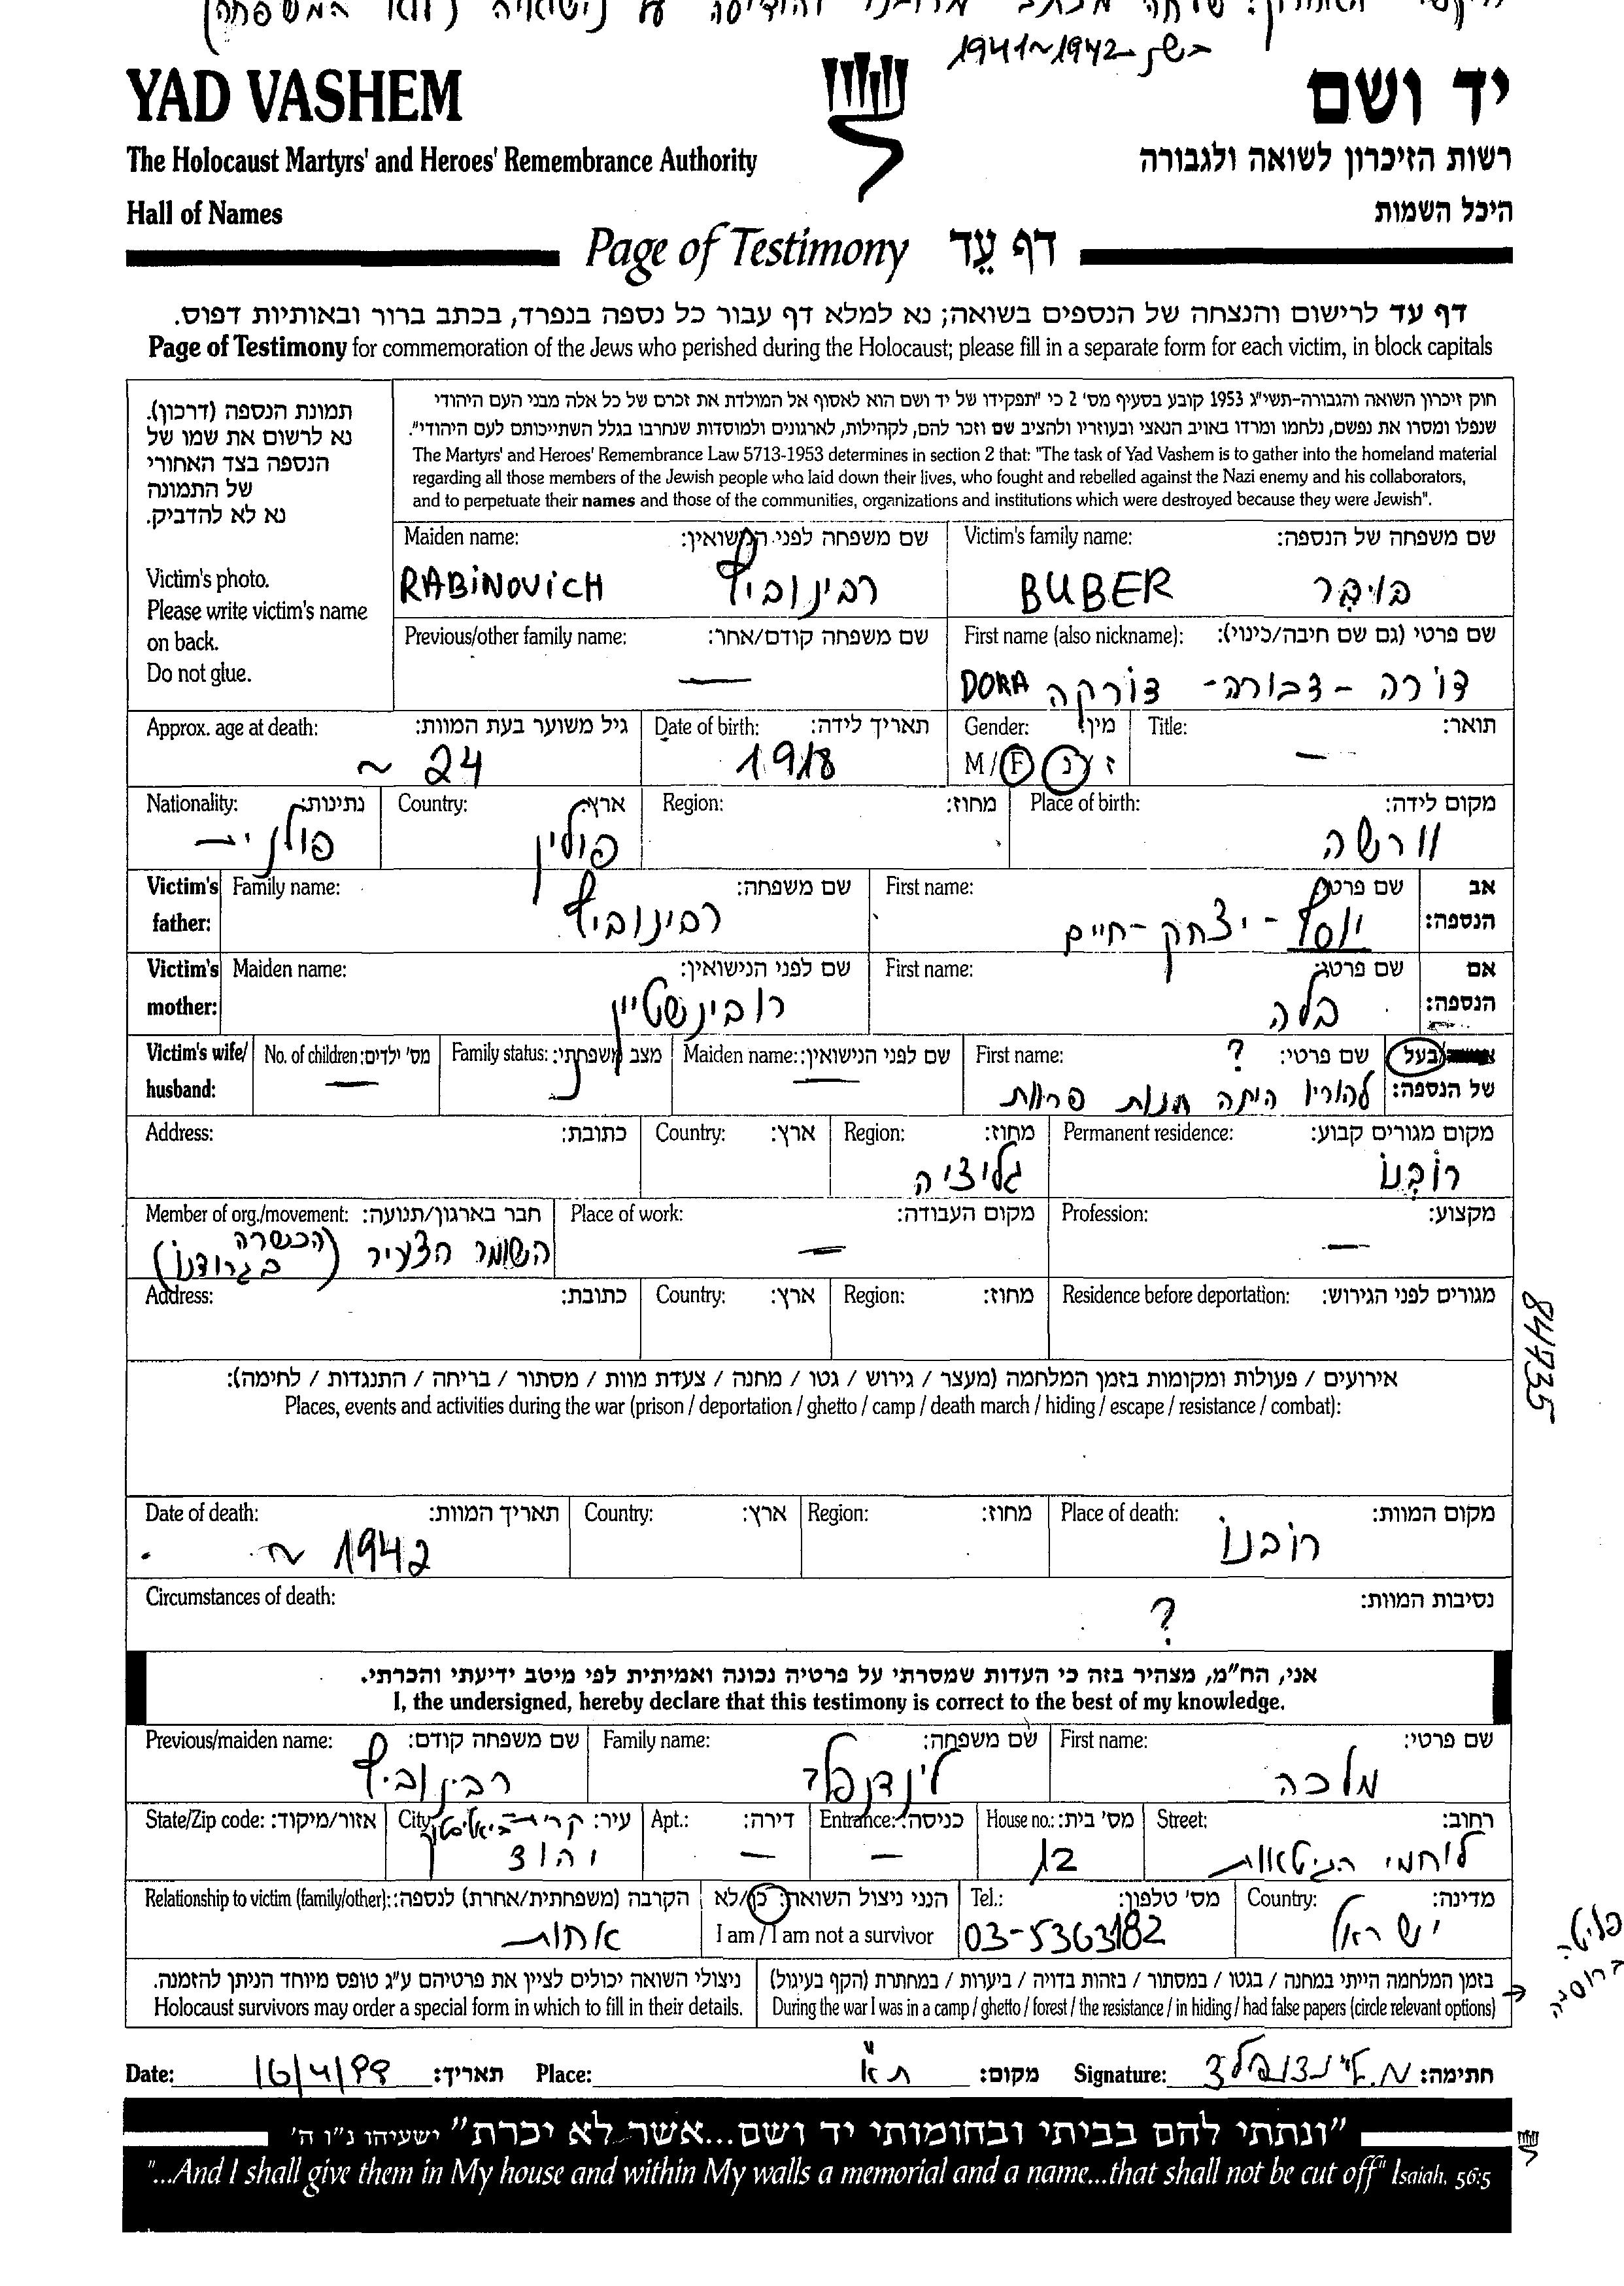 שלחה מכתב והודיסה על נישואיה (המשפחה)
בשנ 1941~1942
YAD VASHEM
יד ושם
The Holocaust Martyrs' and Heroes' Remembrance Authority
רשות הזיכרון לשואה ולגבורה
Hall of Names
היכל השמות
Page of Testimony דף עֵד
דף עד לרישום והנצחה של הנספים בשואה; נא למלא דף עבור כל נספה בנפרד, בכתב ברור ובאותיות דפוס.
Page of Testimony for commemoration of the Jews who perished during the Holocaust; please fill in a separate form for each victim, in block capitals
תמונת הנספה (דרכון).
נא לרשום את שמו של
הנספה בצד האחורי
של התמונה
נא לא להדביק.
Victim's photo.
Please write victim's name
on back.
Do not glue.
חוק זיכרון השואה והגבורה-תשי"ג 1953 קובע בסעיף מס' 2 כי "תפקידו של יד ושם הוא לאסוף אל המולדת את זכרם של כל אלה מבני העם היהודי
שנפלו ומסרו את נפשם, נלחמו ומרדו באויב הנאצי ובעוזריו ולהציב שם וזכר להם, לקהילות, לארגונים ולמוסדות שנחרבו בגלל השתייכותם לעם היהודי".
The Martyrs' and Heroes' Remembrance Law 5713-1953 determines in section 2 that: "The task of Yad Vashem is to gather into the homeland material
regarding all those members of the Jewish people who laid down their lives, who fought and rebelled against the Nazi enemy and his collaborators,
and to perpetuate their names and those of the communities, organizations and institutions which were destroyed because they were Jewish".
Victim's family name: שם משפחה של הנספה:
BUBER בובר
Maiden name: שם משפחה לפני הנישואין:
RABINOVICH רבינוביץ
First name (also nickname): שם פרטי (גם שם חיבה/כינוי):
DORA דורה - דבורה - דורקה
Previous/other family name: שם משפחה קודם/אחר:
—
Title: תואר:
—
Gender: מין:
M / F ז נ
Date of birth: תאריך לידה:
1918
Approx. age at death: גיל משוער בעת המוות:
~ 24
Place of birth: מקום לידה:
וורשה
Region: מחוז:
Country: ארץ:
פולין
Nationality: נתינות:
פולני-
Victim's father: אב הנספה:
First name: שם פרטי:
יוסף - יצחק - חיים
Family name: שם משפחה:
רבינוביץ
Victim's mother: אם הנספה:
First name: שם פרטי:
בלה
Maiden name: שם לפני הנישואין:
רובינשטיין
Victim's wife/ husband: בעל של הנספה:
First name: שם פרטי: ?
להוריו היתה חנות פרוות
Maiden name: שם לפני הנישואין:
—
Family status: מצב משפחתי:
נ
No. of children: מס' ילדים:
—
Permanent residence: מקום מגורים קבוע:
רובנו
Region: מחוז:
גליציה
Country: ארץ:
Address: כתובת:
Profession: מקצוע:
—
Place of work: מקום העבודה:
—
Member of org./movement: חבר בארגון/תנועה:
השומר הצעיר (הכשרה
בגרודנו)
Residence before deportation: מגורים לפני הגירוש:
Region: מחוז:
Country: ארץ:
Address: כתובת:
84735
אירועים / פעולות ומקומות בזמן המלחמה (מעצר / גירוש / גטו / מחנה / צעדת מוות / מסתור / בריחה / התנגדות / לחימה):
Places, events and activities during the war (prison / deportation / ghetto / camp / death march / hiding / escape / resistance / combat):
Place of death: מקום המוות:
רובנו
Region: מחוז:
Country: ארץ:
Date of death: תאריך המוות:
~ 1942
Circumstances of death: נסיבות המוות:
?
אני, הח"מ, מצהיר בזה כי העדות שמסרתי על פרטיה נכונה ואמיתית לפי מיטב ידיעתי והכרתי.
I, the undersigned, hereby declare that this testimony is correct to the best of my knowledge.
First name: שם פרטי:
מלכה
Family name: שם משפחה:
לינדנפלד
Previous/maiden name: שם משפחה קודם:
רבינוביץ
Street: רחוב:
לוחמי הגיטאות
House no.: מס' בית:
12
Entrance: כניסה:
—
Apt.: דירה:
—
City: עיר:
קרית-ביאליסטוק
יהוד
State/Zip code: אזור/מיקוד:
Country: מדינה:
ישראל
Tel.: מס' טלפון:
03-5363182
הנני ניצול השואה: כן/לא
I am / I am not a survivor
Relationship to victim (family/other): הקרבה (משפחתית/אחרת) לנספה:
אחות
בזמן המלחמה הייתי במחנה / בגטו / במסתור / בזהות בדויה / ביערות / במחתרת (הקף בעיגול)
During the war I was in a camp / ghetto / forest / the resistance / in hiding / had false papers (circle relevant options)
פליטה
ברוסיה
ניצולי השואה יכולים לציין את פרטיהם ע"ג טופס מיוחד הניתן להזמנה.
Holocaust survivors may order a special form in which to fill in their details.
Date: 16/4/99 תאריך: Place: ת"א מקום: Signature: מ. לינדנפלד חתימה:
"ונתתי להם בביתי ובחומותי יד ושם...אשר לא יכרת" ישעיהו נ"ו ה'
"...And I shall give them in My house and within My walls a memorial and a name...that shall not be cut off" Isaiah, 56:5